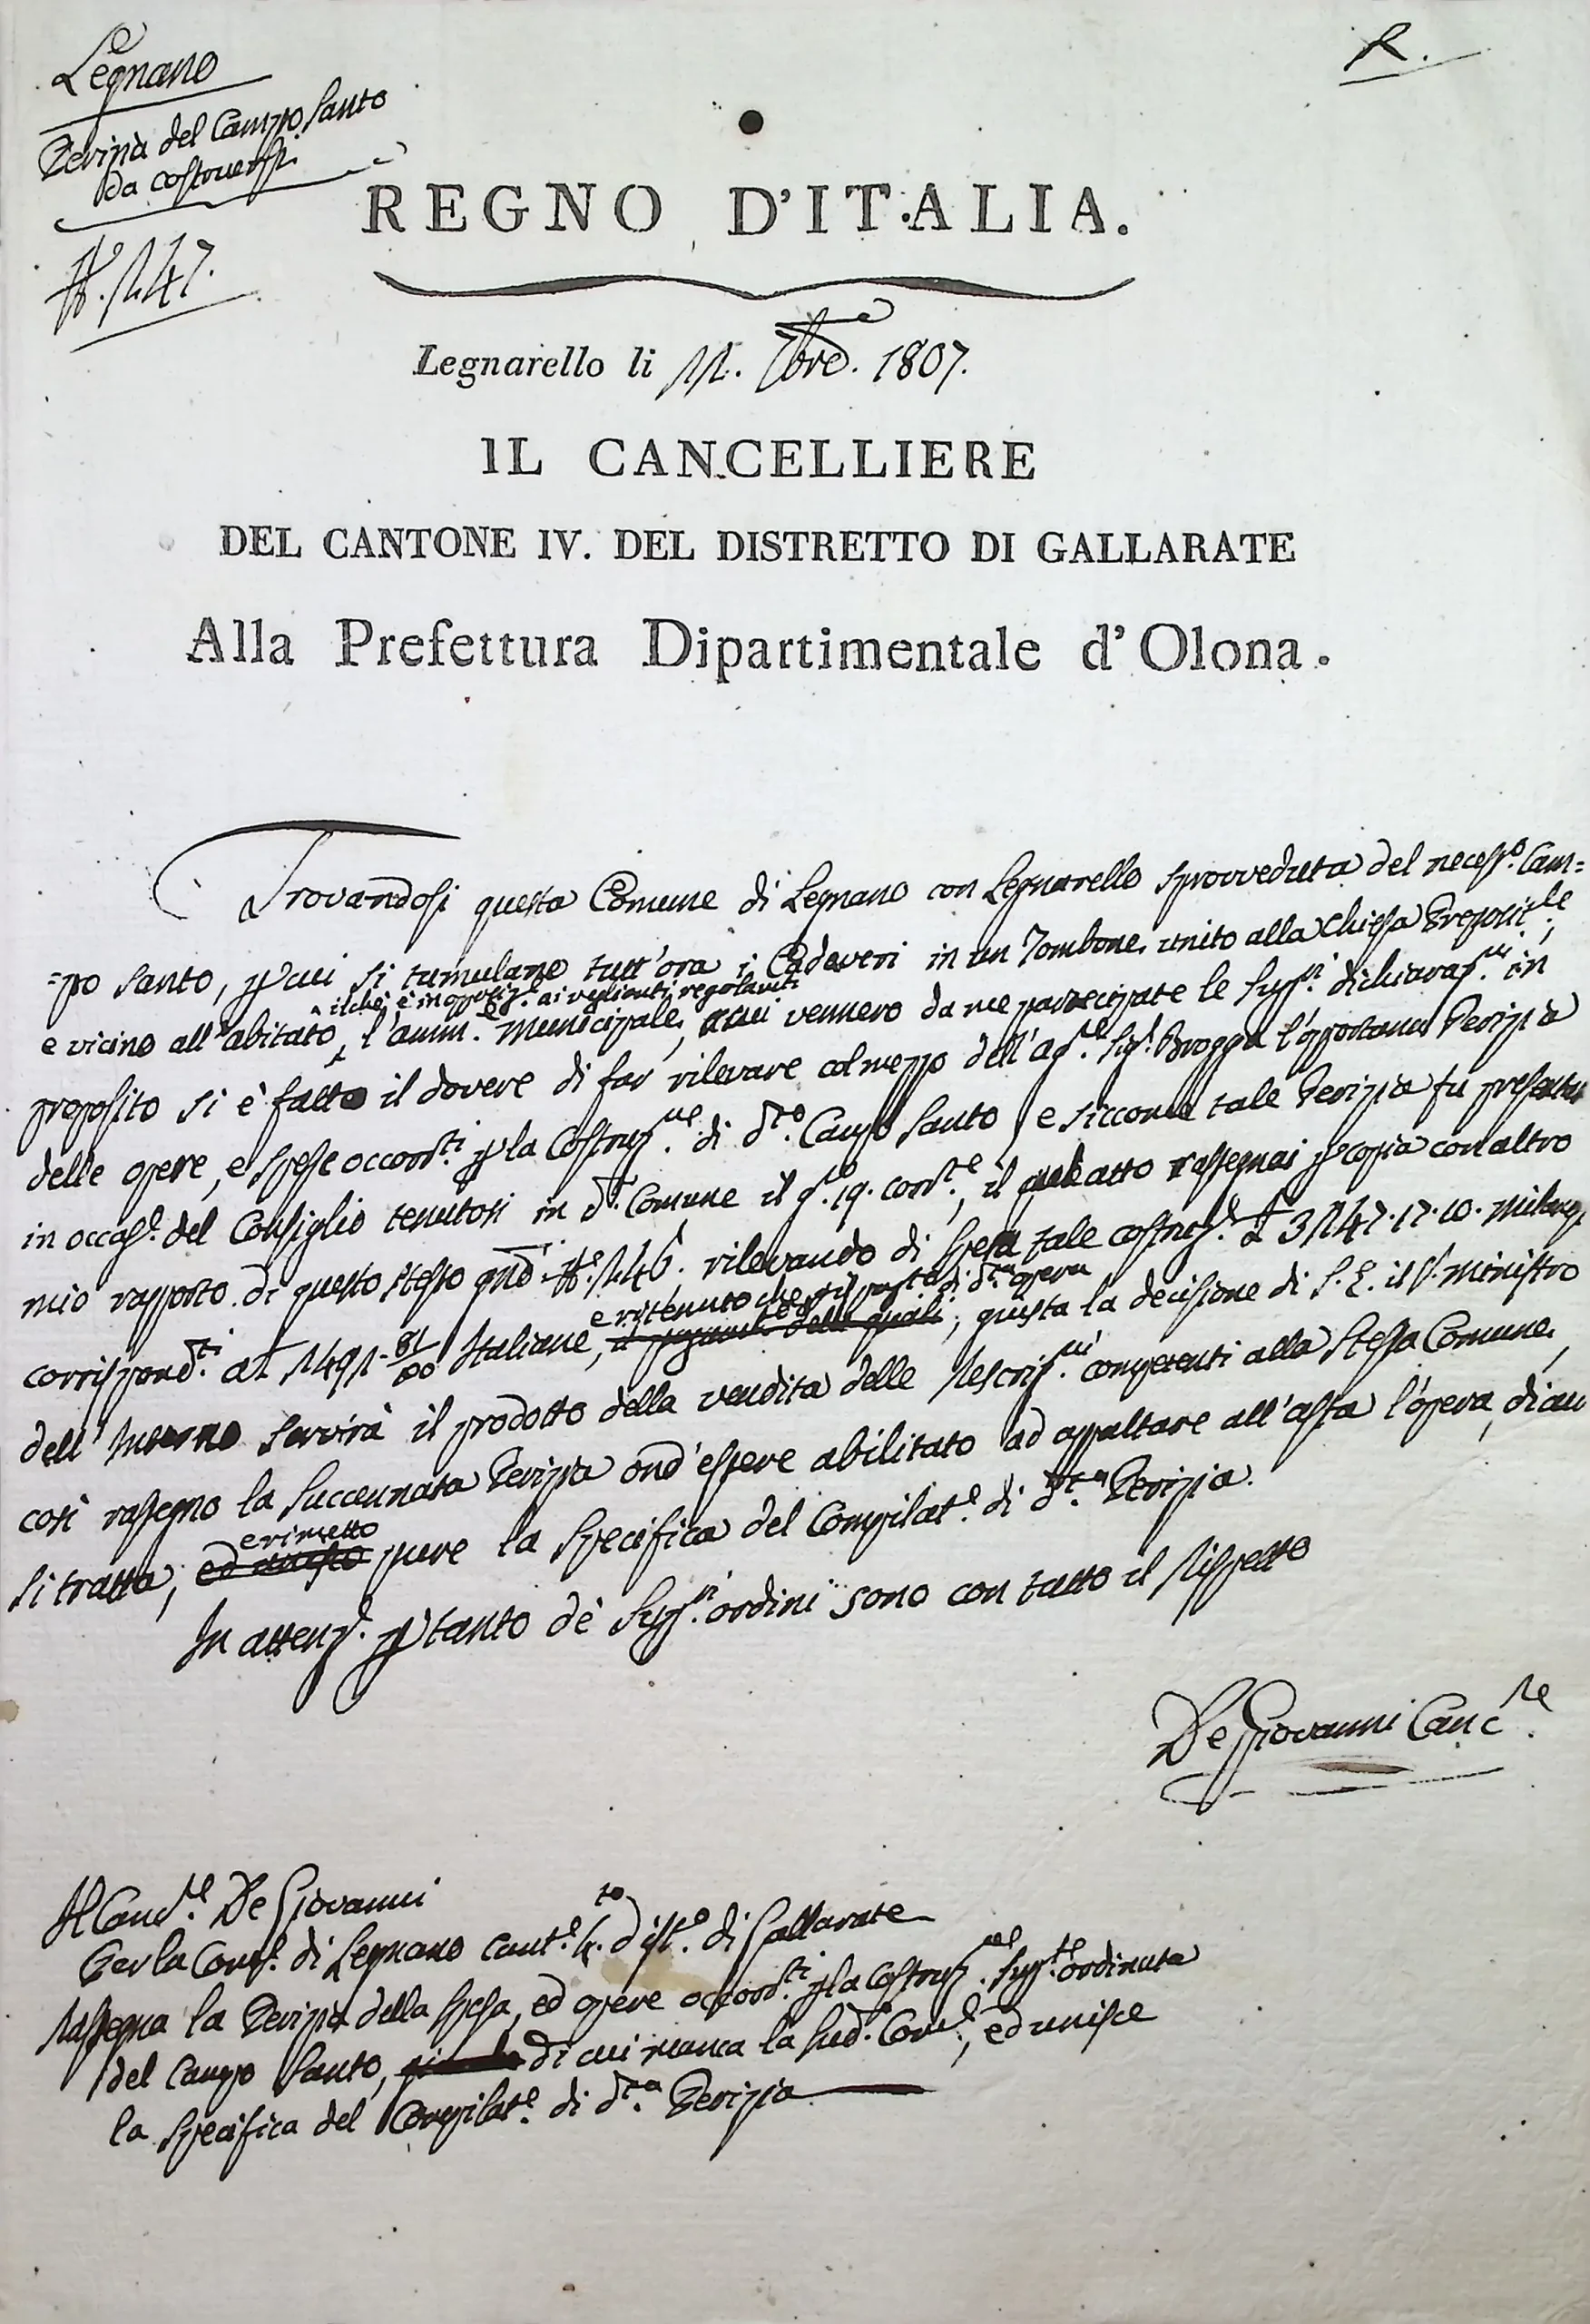 Legnano
R.
Perizia del Campo Santo
da costruersi
N.° 1147.
REGNO D'ITALIA.
Legnarello li 11. 7bre. 1807.
IL CANCELLIERE
DEL CANTONE IV. DEL DISTRETTO DI GALLARATE
Alla Prefettura Dipartimentale d'Olona.
Trovandosi questa Comune di Legnano con Legnarello sprovveduta del necess.° Cam=
=po santo, p cui si tumulano tutt'ora i Cadaveri in un Tombone unito alla Chiesa Preposit.le,
il che è in opposiz.e ai veglianti regolam.ti
e vicino all'abitato, l'amm.e Municipale, cui vennero da me partecipate le Sup.ri dichiaraz.ni in
proposito si è fatto il dovere di far rilevare col mezzo dell'Ag.re Sig.r Broggi l'opportuna Perizia
delle opere, e spese occorr.ti p la Costruz.ne di d.to Campo Santo, e siccome tale Perizia fu presentata
in occas.e del Consiglio tenutosi in d.a Comune il g.no 19. corr.te, il quale atto rassegnai p copia con altro
mio rapporto di questo stesso gno N.° 1146. rilevando di spesa tale costruz.e £ 3147.17.10. Milanesi
e ritenuto che di d.ta opera
corrispond.ti a £ 1491.81 Italiane, delle quali, giusta la decisione di S. E. il S.r Ministro
dell'Interno servirà il prodotto della vendita delle Rescriz.ni competenti alla Stessa Comune,
così rassegno la succennata Perizia ond'essere abilitato ad appaltare all'asta l'opera, di cui
e rimetto
si tratta, ed unisco pure la Specifica del Compilat.e di d.ta Perizia.
In attenz.e p tanto de' Sup.ri ordini sono con tutto il rispetto
De Giovanni Canc.re
Il Canc.re De Giovanni
Per la Com.e di Legnano Cant.e 4.to Dist.o di Gallarate
Rassegna la Perizia della Spesa, ed opere occorr.ti p la Costruz.ne Sup.te ordinata
del Campo Santo, di cui manca la Sud.a Com.e, ed unisce
la Specifica del Compilat.e di d.ta Perizia